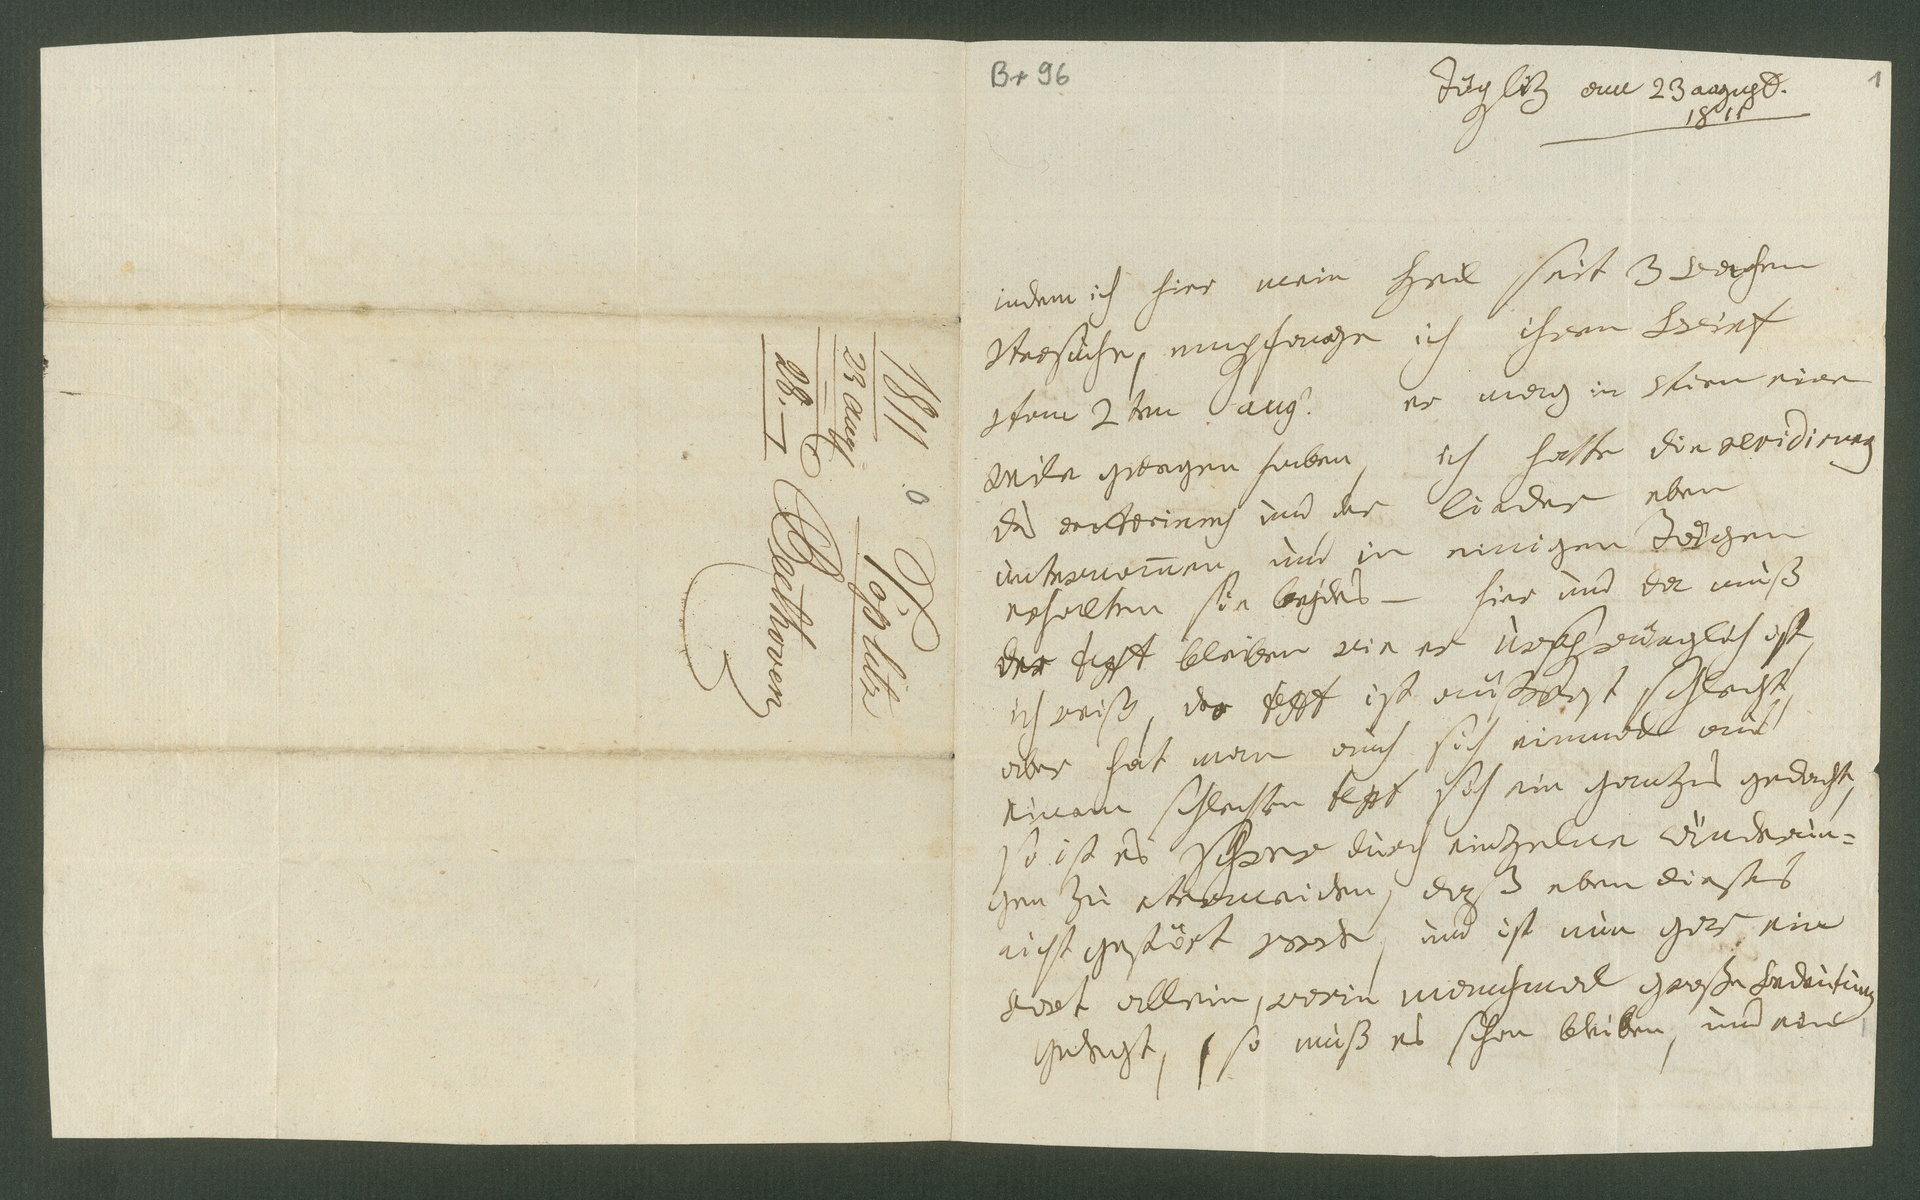 1811
23 aug
28. —
Töplitz
Beethoven
Br 96
1
Töplitz am 23 august.
1811
indem ich hier mein Heil seit 3 wochen
versuche, empfange ich ihren Brief
vom 2ten aug. er mag in vien eine
weile gelegen haben, ich hatte die revidirung
des oratoriums und der lieder eben
unternom̅en und in einigen Tägen
erhalten sie beydes — hier und da muß
der text bleiben wie er ursprünglich ist,
ich weiß, der text ist aüßerst schlecht,
aber hat man auch sich einmal aus
einem schlechten text sich ein ganzes gedacht,
so ist es schwer durch eintzelne änderun=
gen zu vermeiden, daß eben dieses
nicht gestört werde, und ist nun gar ein
wort allein, worin manchmal große bedeutung
gelegt, so muß es schon bleiben, und ein